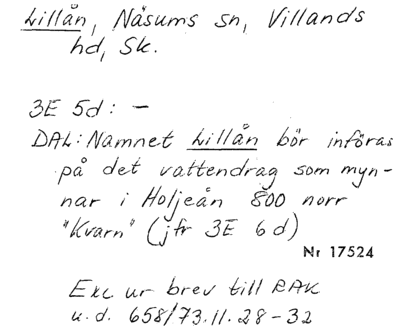 Lillån, Näsums sn, Villands
hd, Sk.
3E 5d: -
DAL: Namnet Lillån bör införas
på det vattendrag som myn-
nar i Holjeån 800 norr
"Kvarn" (jfr 3E 6d)
Nr 17524
Exc ur brev till RAK
u.d. 658/73.11.28-32